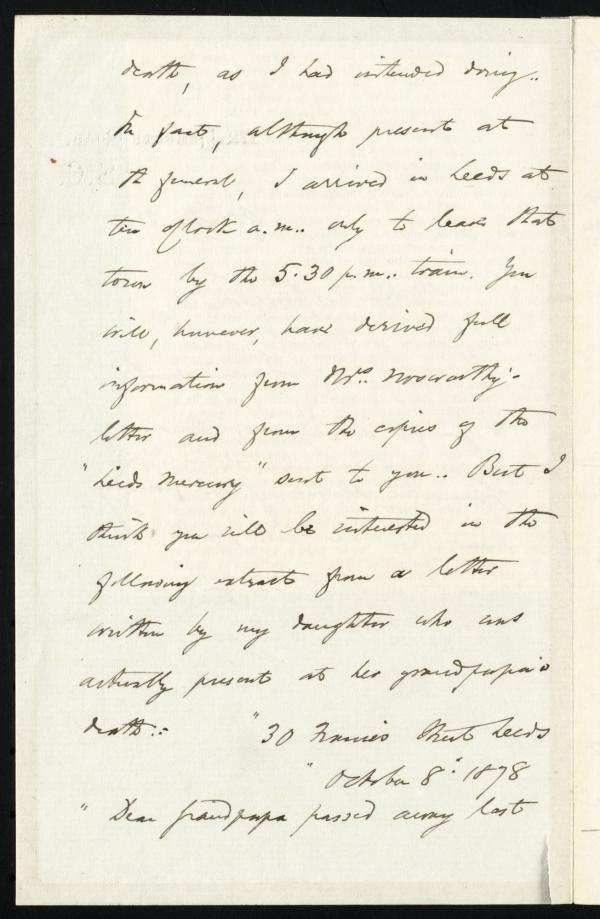 death, as I had intended doing..
In fact, although present at
the funeral, I arrived in Leeds at
ten o'clock a.m.. only to leave that
town by the 5.30 p.m.. train. You
will, however, have derived full
information from Mrs. Nosworthy's
letter and from the copies of the
"Leeds Mercury" sent to you.. But I
think you will be interested in the
following extract from a letter
written by my daughter who was
actually present at her grandpapa's
death:- "30 Francis Street Leeds
" October 8" 1878
" Dear Grandpapa passed away last